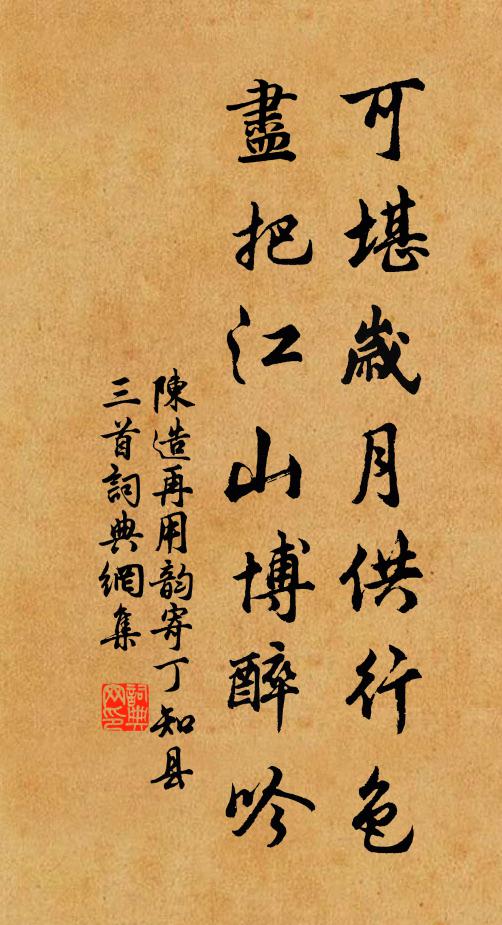 可堪歲月供行色
盡把江山博醉吟
陳造再用韵寄丁知县
三首詞典網集
詞典网印